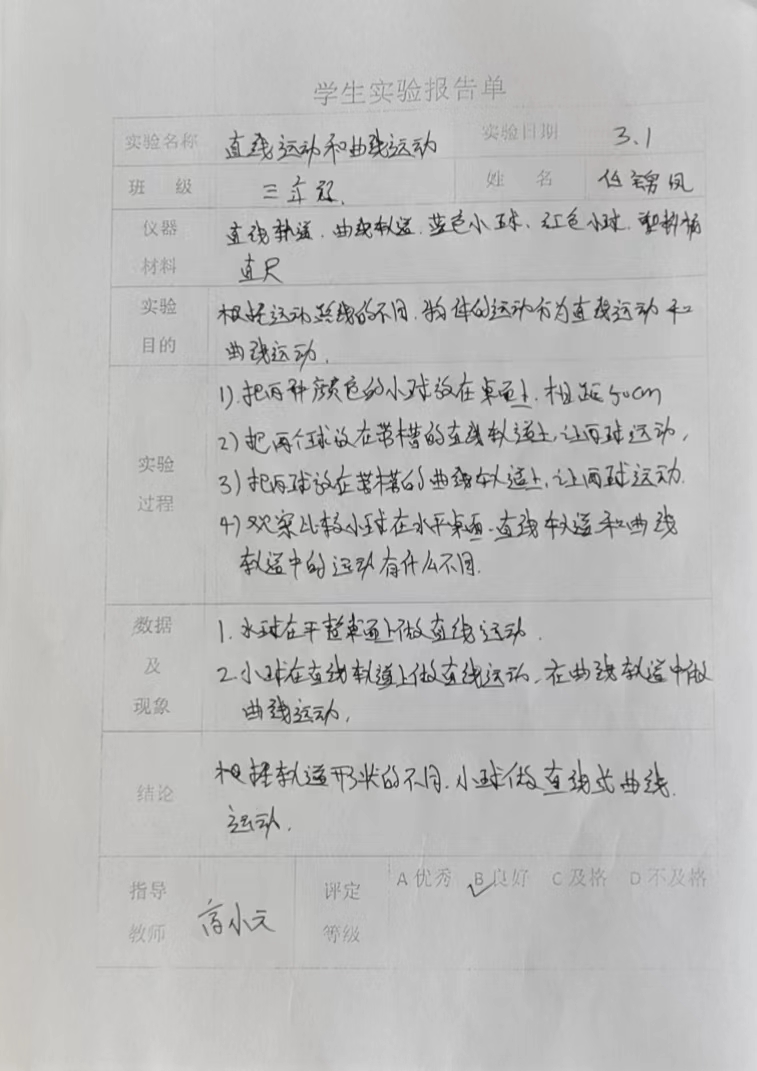 学生实验报告单
实验名称 直线运动和曲线运动 实验日期 3.1
班 级 三年级. 姓 名 锦凤
仪器 直线轨道.曲线轨道.蓝色小球.红色小球.塑料桶
材料 直尺
实验 根据运动路线的不同.物体的运动分为直线运动和
目的 曲线运动.
1).把两种颜色的小球放在桌面上.相距50cm
2)把两个球放在带槽的直线轨道上,让两球运动,
实验 3)把两球放在带槽的曲线轨道上,让两球运动.
过程 4)观察比较小球在水平桌面.直线轨道和曲线
轨道中的运动有什么不同.
数据 1.水球在平整桌面上做直线运动.
及 2.小球在直线轨道上做直线运动,在曲线轨道中做
现象 曲线运动,
结论 根据轨道形状的不同.小球做直线或曲线.
运动.
指导 评定 A优秀 B良好 C及格 D不及格
教师 高小元 等级